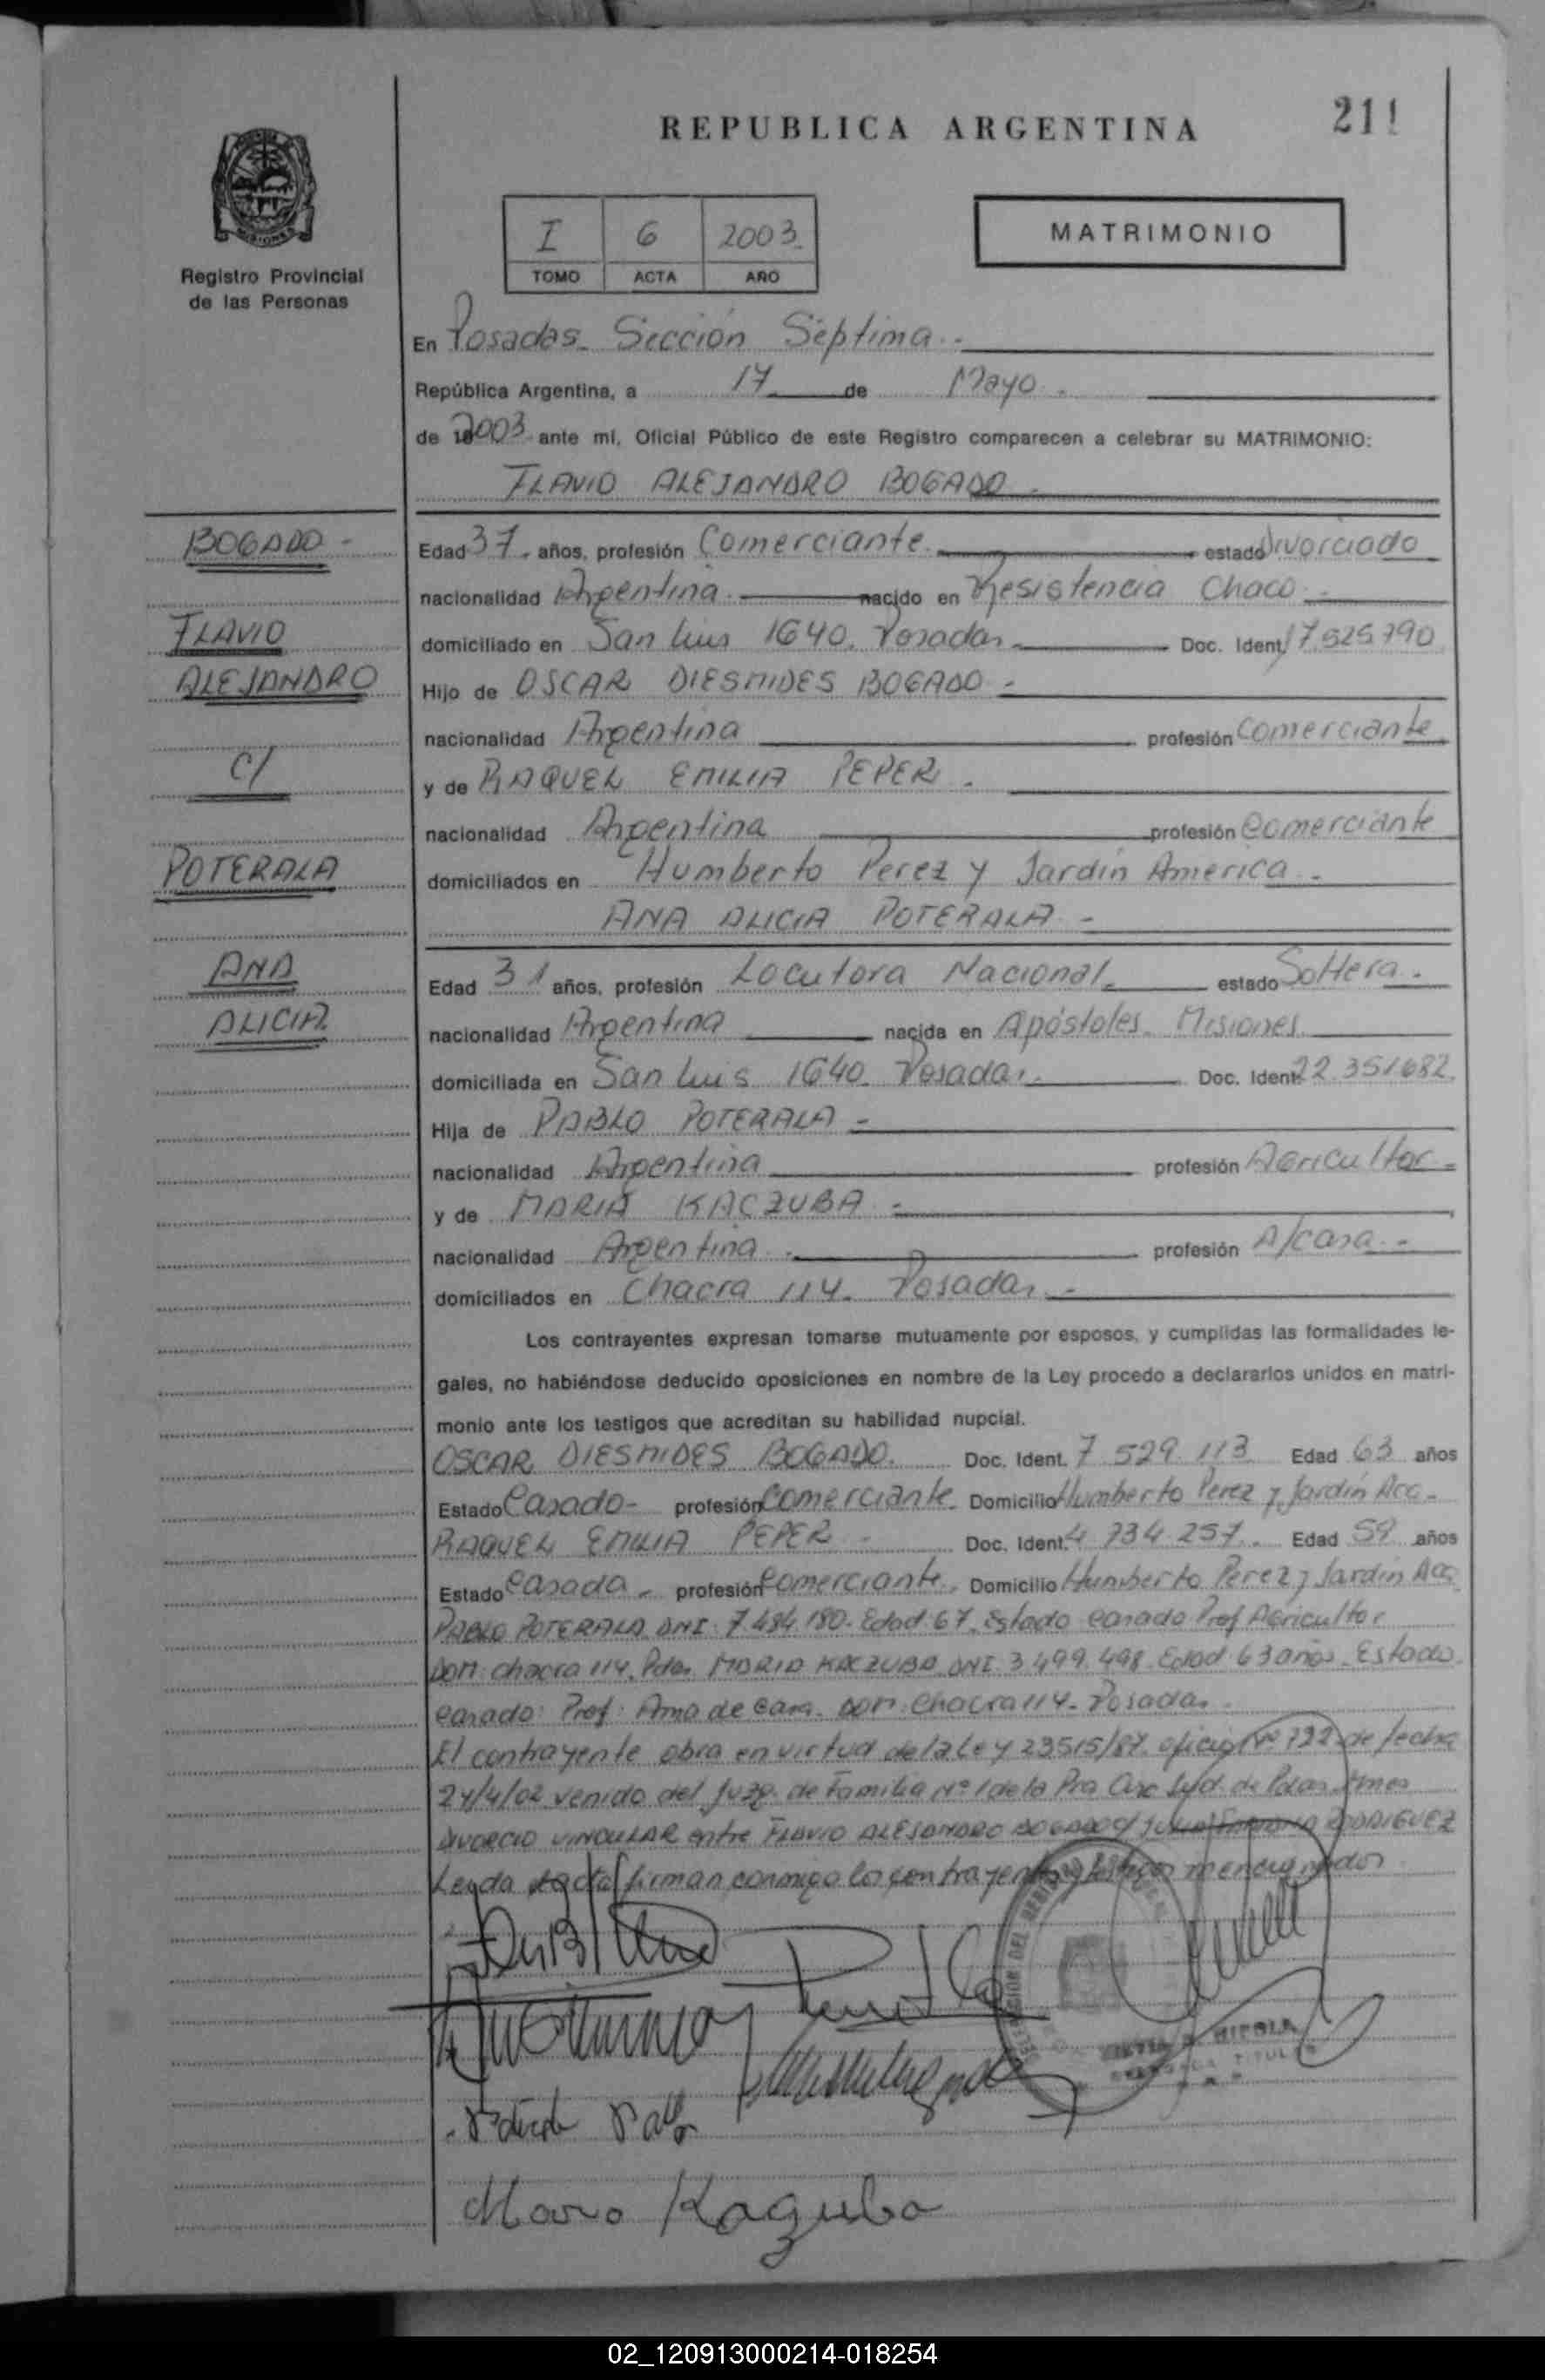 REPUBLICA ARGENTINA
211
MISIONES
Registro Provincial
de las Personas
I 6 2003
TOMO ACTA AÑO
MATRIMONIO
En Posadas Sección Séptima
República Argentina, a 17 de Mayo
de 2003 ante mí, Oficial Público de este Registro comparecen a celebrar su MATRIMONIO:
FLAVIO ALEJANDRO BOGADO
BOGADO
FLAVIO
ALEJANDRO
C/
POTERALA
ANA
ALICIA
Edad 37 años, profesión Comerciante estado Divorciado
nacionalidad Argentina nacido en Resistencia Chaco
domiciliado en San Luis 1640. Posadas Doc. Ident. 17.525.790
Hijo de OSCAR DIESMIDES BOGADO
nacionalidad Argentina profesión Comerciante
y de RAQUEL EMILIA PEPER
nacionalidad Argentina profesión Comerciante
domiciliados en Humberto Perez y Jardín America
ANA ALICIA POTERALA
Edad 31 años, profesión Locutora Nacional estado Soltera
nacionalidad Argentina nacida en Apóstoles Misiones
domiciliada en San Luis 1640 Posadas Doc. Ident. 22.351.682
Hija de PABLO POTERALA
nacionalidad Argentina profesión Agricultor
y de MARIA KACZUBA
nacionalidad Argentina profesión A/casa
domiciliados en Chacra 114. Posadas
Los contrayentes expresan tomarse mutuamente por esposos, y cumplidas las formalidades le-
gales, no habiéndose deducido oposiciones en nombre de la Ley procedo a declararlos unidos en matri-
monio ante los testigos que acreditan su habilidad nupcial.
OSCAR DIESMIDES BOGADO. Doc. Ident. 7.529.113 Edad 63 años
Estado Casado profesión Comerciante Domicilio Humberto Perez y Jardín Aca.
RAQUEL EMILIA PEPER Doc. Ident. 4.734.257 Edad 59 años
Estado Casada profesión Comerciante Domicilio Humberto Perez y Jardín Aca
PABLO POTERALA DNI: 7.484.180. Edad 67. Estado casado Prof Agricultor
Dom: chacra 114. Pdas. MARIA KACZUBA DNI 3.499.498. Edad 63 años. Estado
casado: Prof: Ama de casa. Dom: Chacra 114. Posadas.
El contrayente obra en virtud de la Ley 23515/87. oficio Nº 722 de fecha
24/4/02 venido del Juzg. de Familia Nº 1 de la Pra Circ Jud. de Pdas Mnes
DIVORCIO VINCULAR entre FLAVIO ALEJANDRO BOGADO c/ RODRIGUEZ
Leyda acta firman conmigo los contrayentes y testigos mencionados
Poterala Pablo
Maria Kazuba
02_120913000214-018254